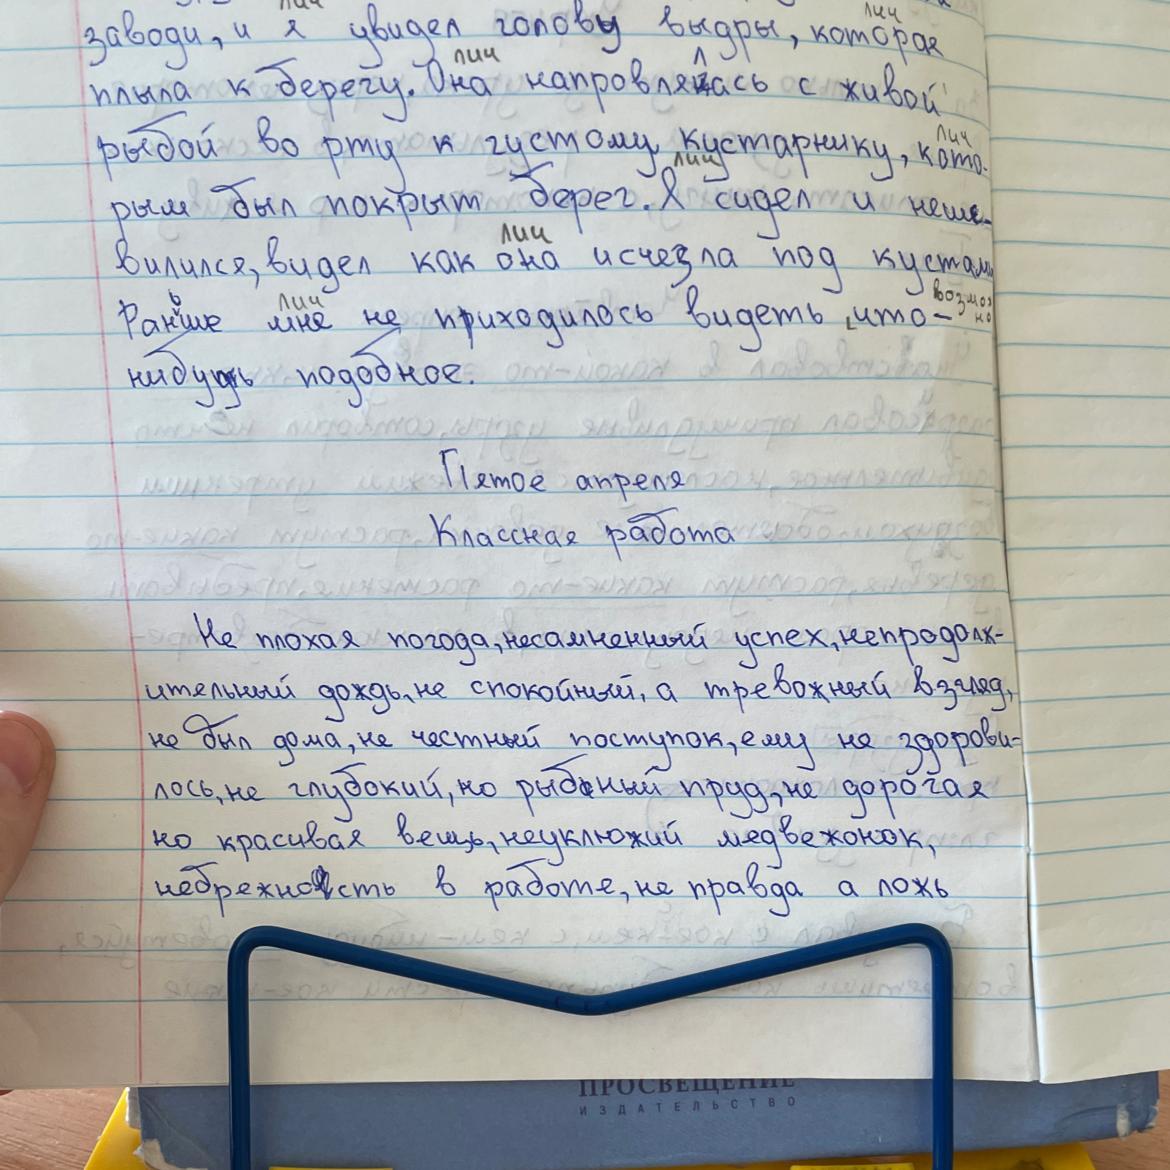 лич
заводи, и я увидел голову выдры, которая
лич
плыла к берегу. Она направлялась с живой
лич
рыбой во рту к густому кустарнику, кото-
лич
рым был покрыт берег. Я сидел и неше-
лич
вилился, видел как она исчезла под кустами
лич
возможно
Раньше мне не приходилось видеть что-
нибудь подобное.
Пятое апреля
Классная работа
Не плохая погода, несамненный успех, непродолж-
ительный дождь, не спокойный, а тревожный взгляд,
не был дома, не честный поступок, ему не здорови-
лось, не глубокий, но рыбный пруд, не дорогая
но красивая вещь, неуклюжий медвежонок,
небрежность в работе, не правда а ложь
ПРОСВЕЩЕНИЕ
ИЗДАТЕЛЬСТВО